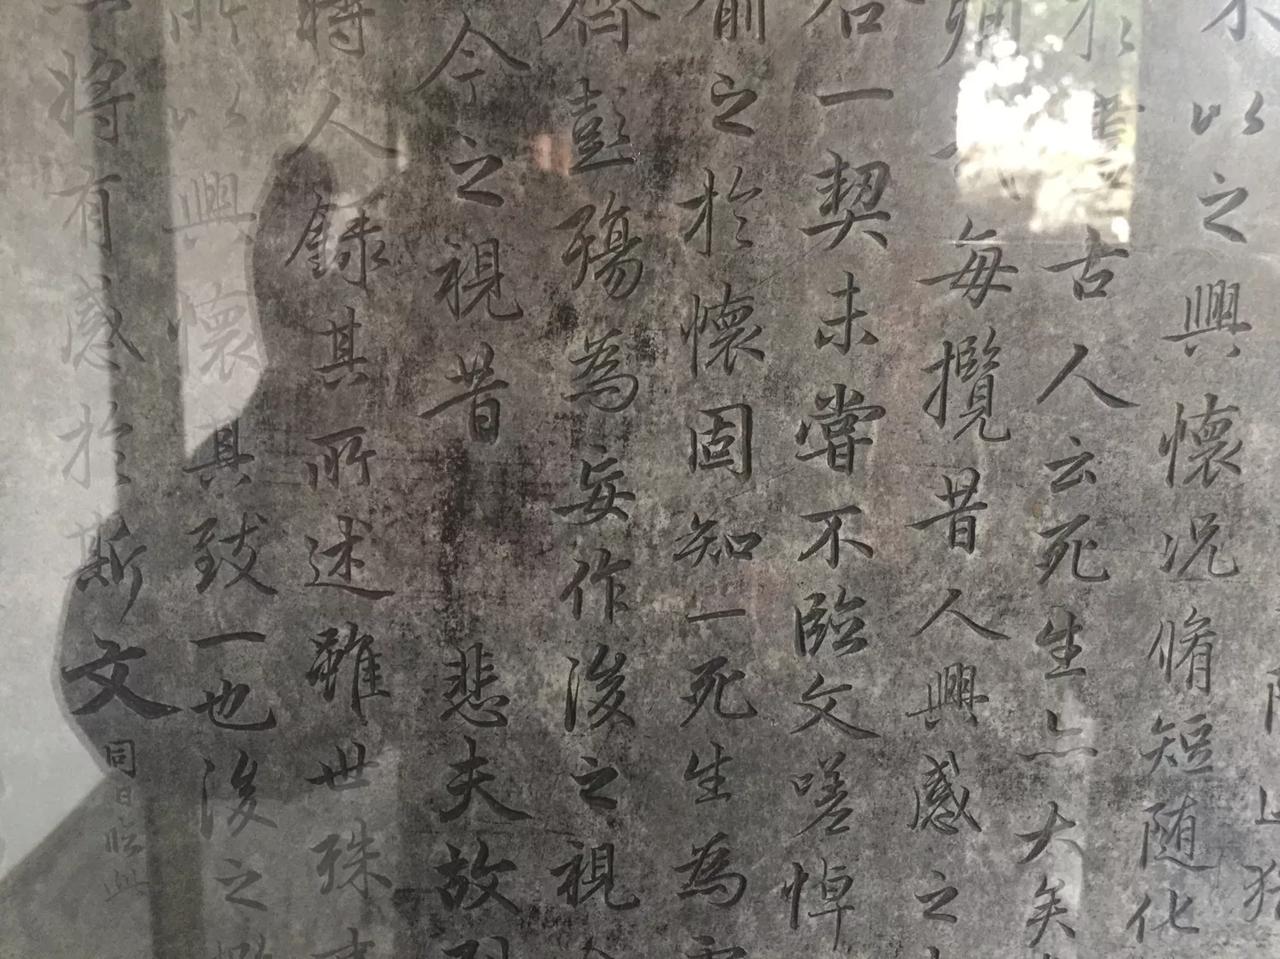 不以之興懷況脩短随化
古人云死生亦大矣
每攬昔人興感之
合一契未嘗不臨文嗟悼
喻之於懷固知一死生為
齊彭殤為妄作後之視
今之視昔 悲夫故
時人録其所述雖世殊
所以興懷其致一也後之
將有感於斯文